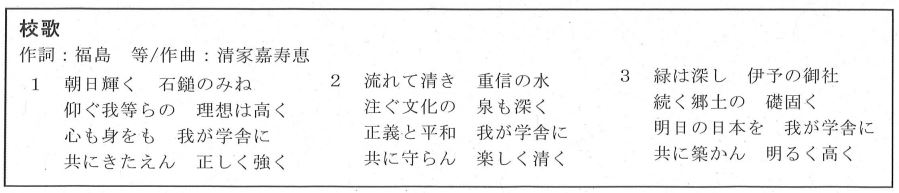 校歌
作詞：福島　等/作曲：清家嘉寿恵
1　朝日輝く　石鎚のみね
仰ぐ我等らの　理想は高く
心も身をも　我が学舎に
共にきたえん　正しく強く
2　流れて清き　重信の水
注ぐ文化の　泉も深く
正義と平和　我が学舎に
共に守らん　楽しく清く
3　緑は深し　伊予の御社
続く郷土の　礎固く
明日の日本を　我が学舎に
共に築かん　明るく高く